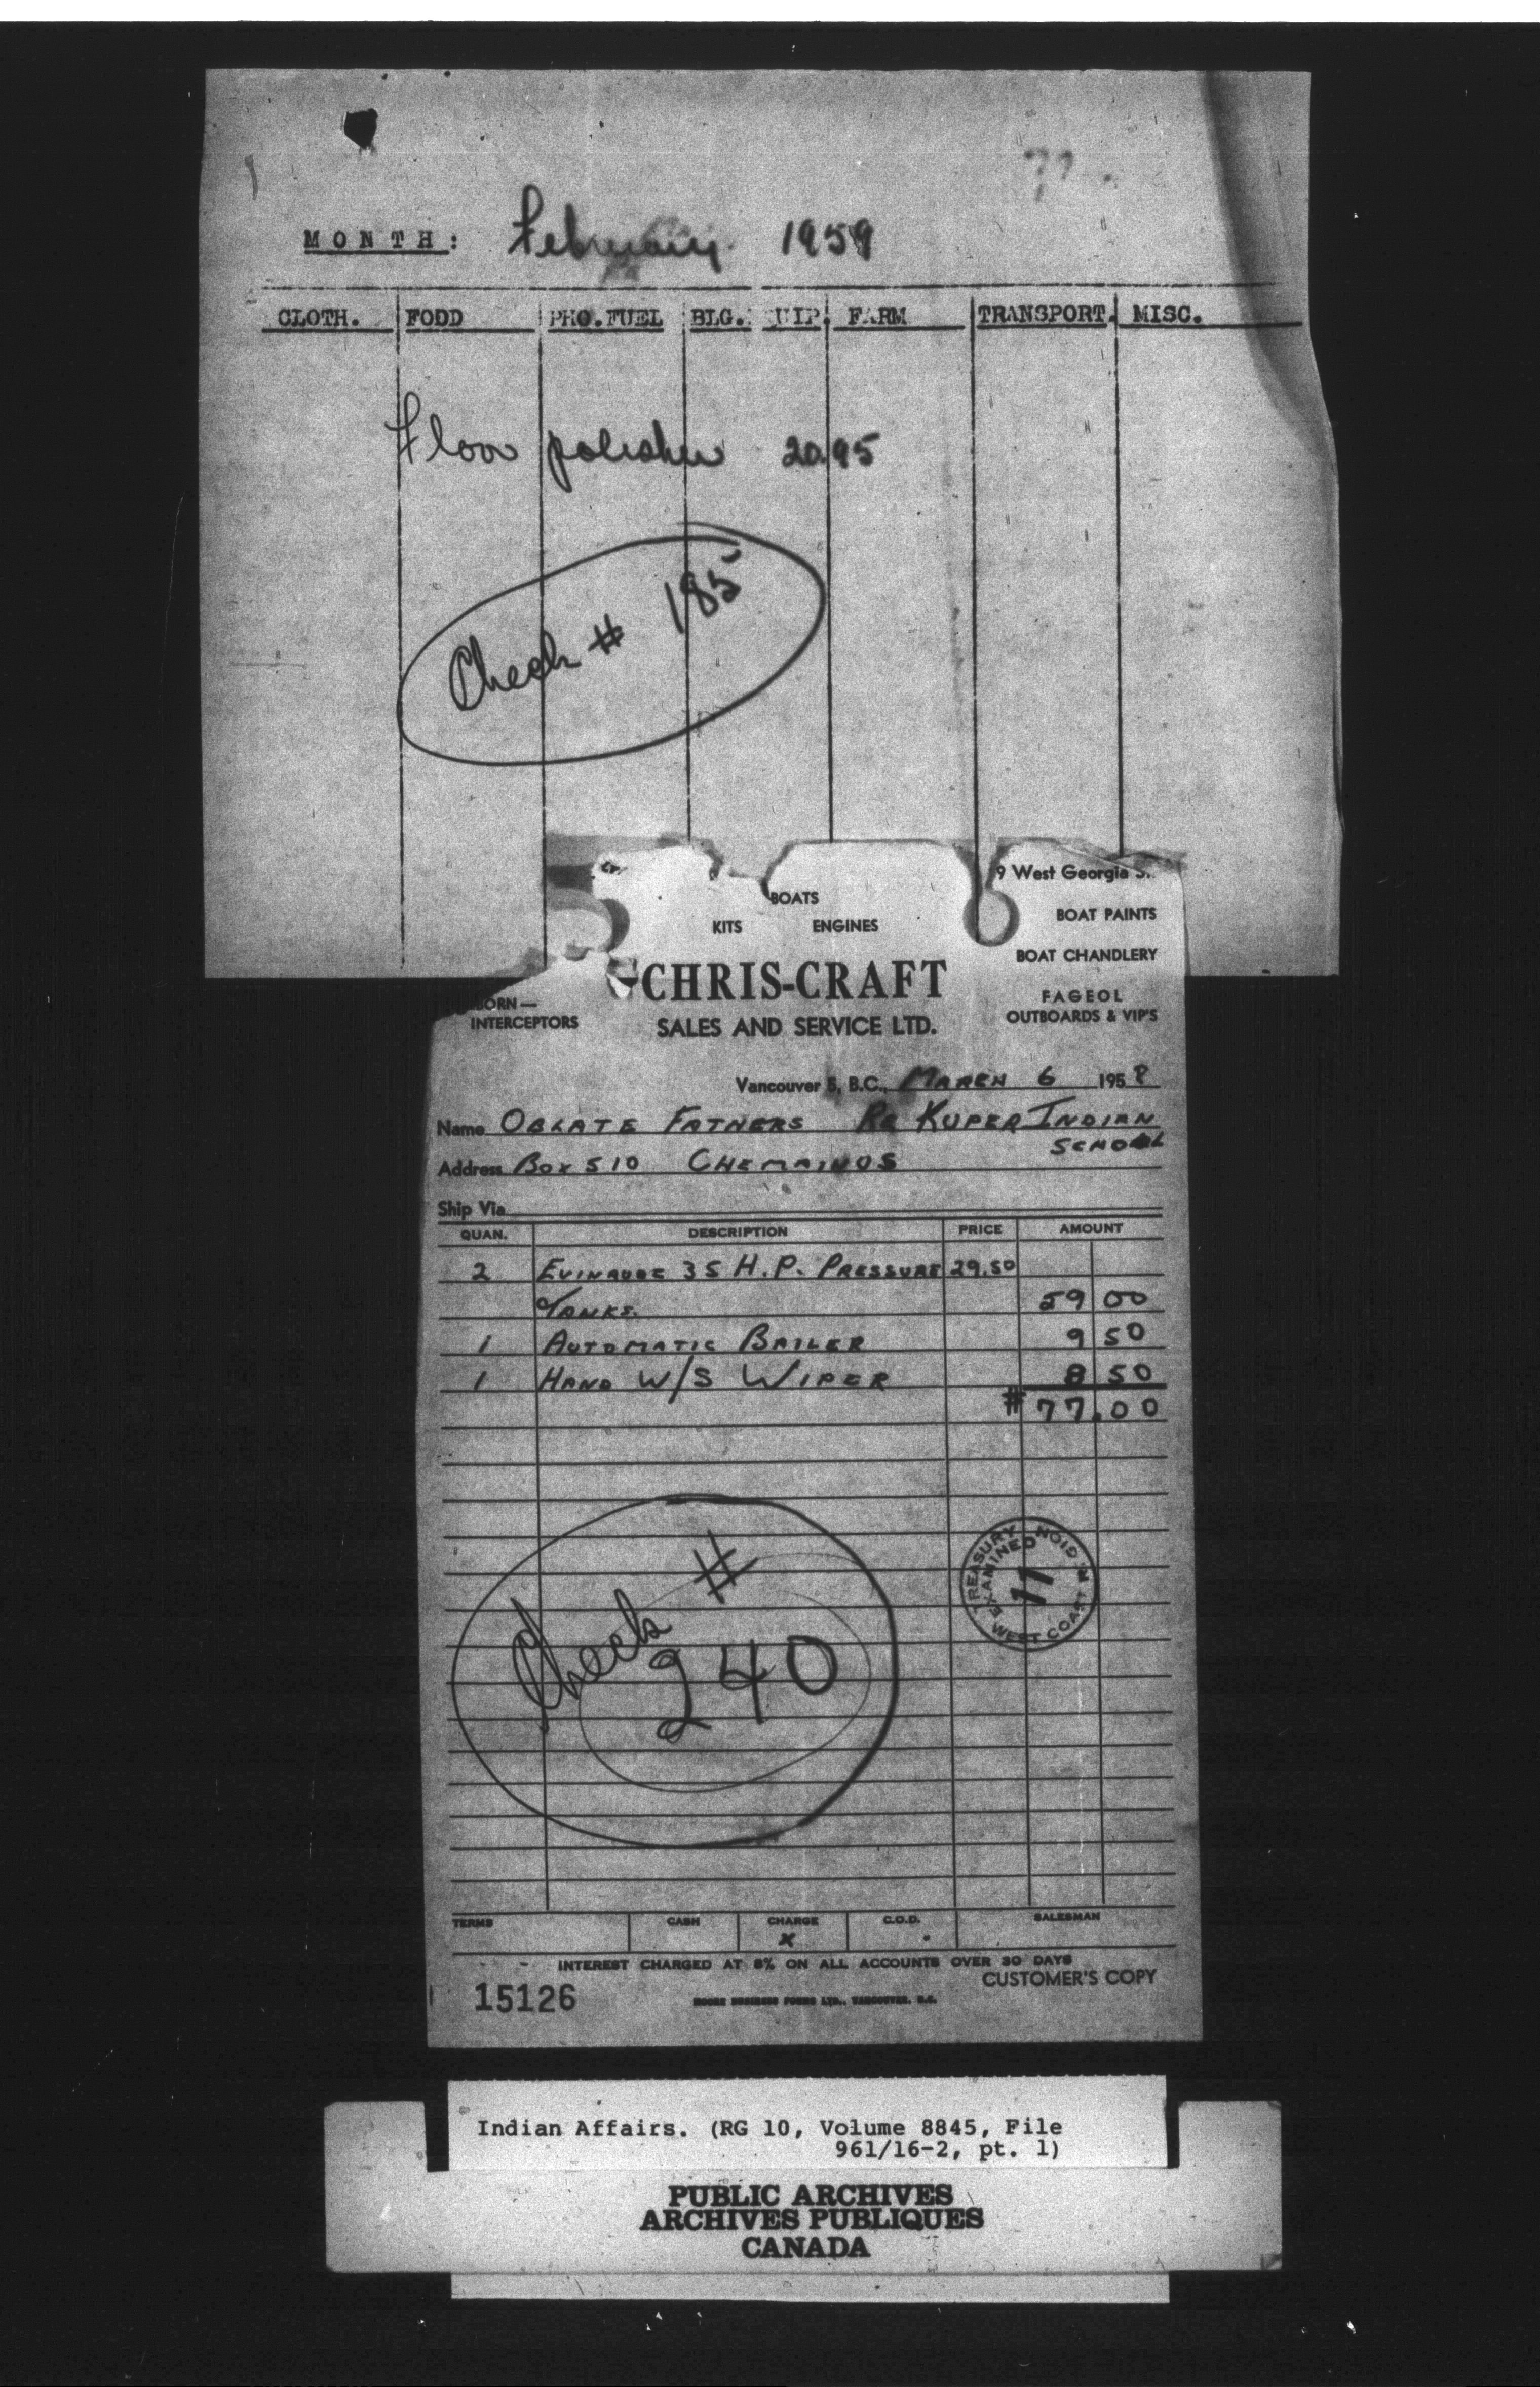 MONTH: February 1959
CLOTH. FODD PRO.FUEL BLG. UIP. FARM TRANSPORT. MISC.
Floor polisher 20.95
Check # 185
9 West Georgia St.
BOATS
KITS ENGINES
BOAT PAINTS
BOAT CHANDLERY
CHRIS-CRAFT
SALES AND SERVICE LTD.
BORN—
INTERCEPTORS
FAGEOL
OUTBOARDS & VIP'S
Vancouver 5, B.C., MARCH 6 1958
Name OBLATE FATHERS RE KUPER INDIAN
SCHOOL
Address BOX 510 CHEMAINUS
Ship Via
QUAN. DESCRIPTION PRICE AMOUNT
2 EVINRUDE 35 H.P. PRESSURE 29.50
TANKS. 59 00
1 AUTOMATIC BAILER 9 50
1 HAND W/S WIPER 8 50
# 77.00
Check #
240
TREASURY
EXAMINED
11
WEST COAST
TERMS CASH CHARGE C.O.D. SALESMAN
x
INTEREST CHARGED AT 8% ON ALL ACCOUNTS OVER 30 DAYS
15126 CUSTOMER'S COPY
MOORE BUSINESS FORMS LTD., VANCOUVER, B.C.
Indian Affairs. (RG 10, Volume 8845, File
961/16-2, pt. 1)
PUBLIC ARCHIVES
ARCHIVES PUBLIQUES
CANADA